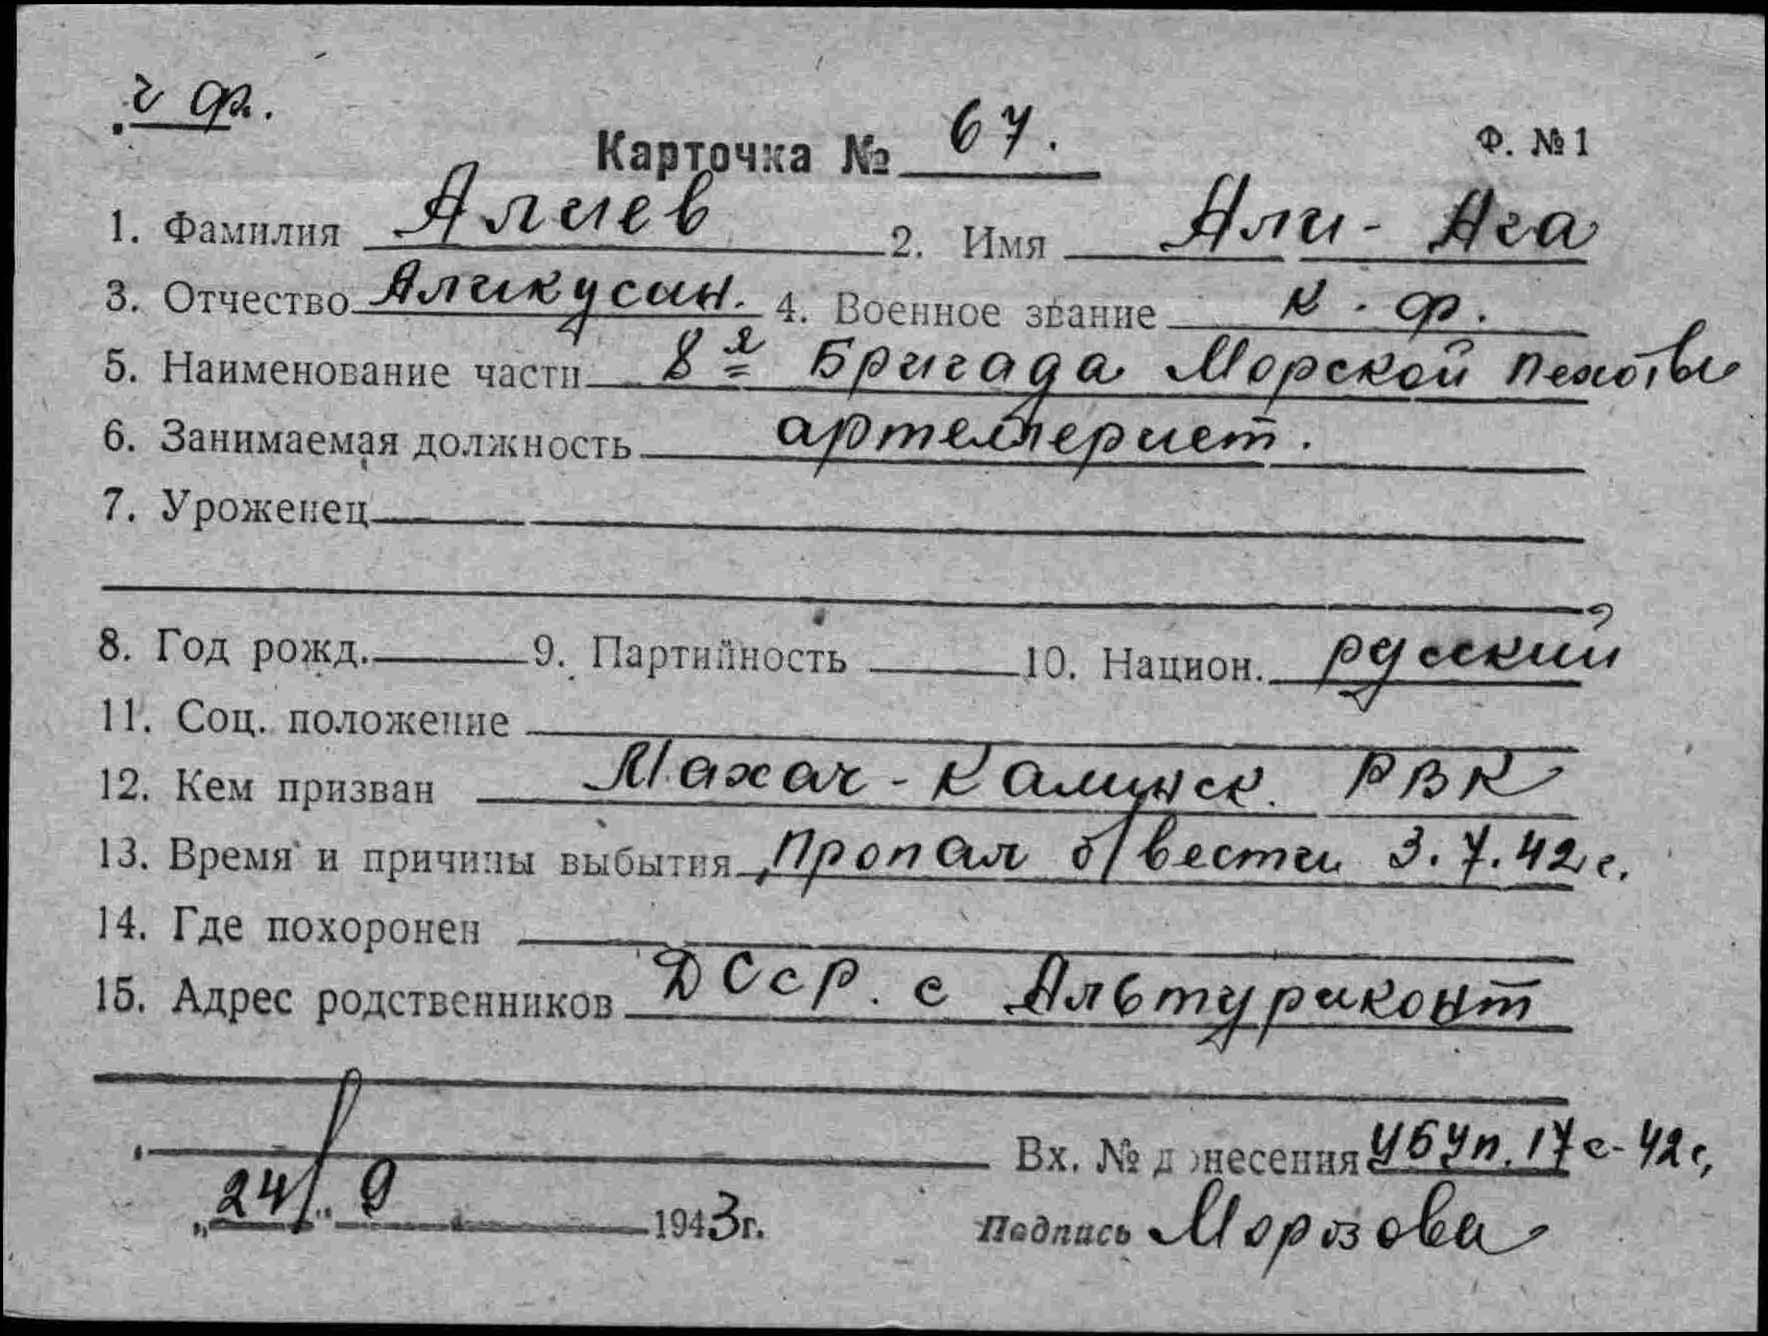 ч ф.
Карточка № 67. Ф. №1
1. Фамилия Алиев 2. Имя Али - Ага
3. Отчество Аликусин. 4. Военное звание к. ф.
5. Наименование части 8я Бригада Морской пехоты
6. Занимаемая должность артеллерист.
7. Уроженец
8. Год рожд. 9. Партийность 10. Национ. русский
11. Соц. положение
12. Кем призван Махач - Калинск. РВК
13. Время и причины выбытия Пропал б/вести 3.7.42г.
14. Где похоронен
15. Адрес родственников ДССР. с Альтурикант
Вх. № донесения 17с-42г,
„24" 9 1943г. Подпись Морозова